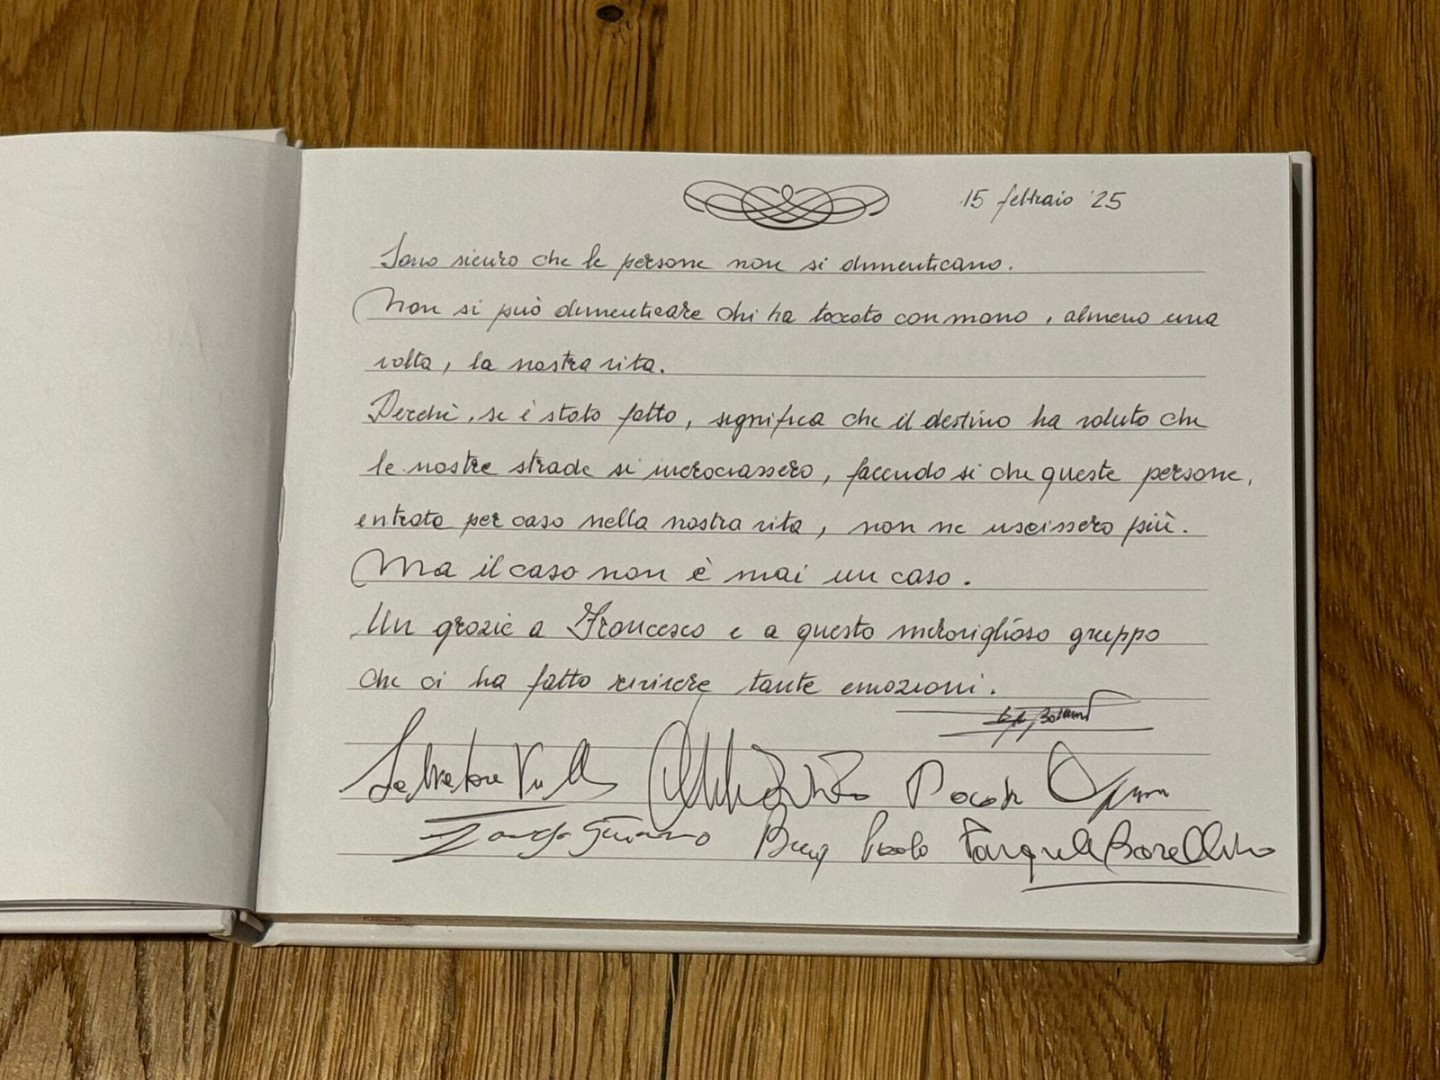 15 febbraio '25
Sono sicuro che le persone non si dimenticano.
Non si può dimenticare chi ha toccato con mano, almeno una
volta, la nostra vita.
Perchè, se è stato fatto, significa che il destino ha voluto che
le nostre strade si incrociassero, facendo si che queste persone,
entrate per caso nella nostra vita, non ne uscissero più.
Ma il caso non è mai un caso.
Un grazie a Francesco e a questo meraviglioso gruppo
che ci ha fatto rivivere tante emozioni.
Salvatore
Paolo Pasquale Borellino